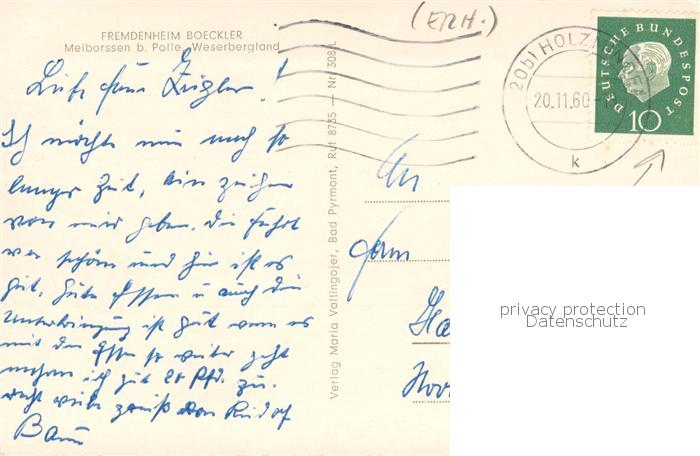 FREMDENHEIM BOECKLER
Meiborssen b. Polle, Weserbergland
(ERH.)
(20b) HOLZMINDEN
20.11.60
k
DEUTSCHE BUNDESPOST
10
Liebe Frau Zugler!
Ich möchte nun nach so
langer Zeit, ein Zeichen
von mir geben. Die Fahrt
war schön und hier ist es
gut. Gute Essen u auch die
Unterbringung ist gut wenn es
mit dem Essen so weiter geht
nehme ich gut 20 Pfd. zu.
recht viele Grüße von Rudolf
Baum
Verlag Maria Vattingojer, Bad Pyrmont, Ruf 8735 — Nr. 308
An
Fam
Ha
Hoo
privacy protection
Datenschutz